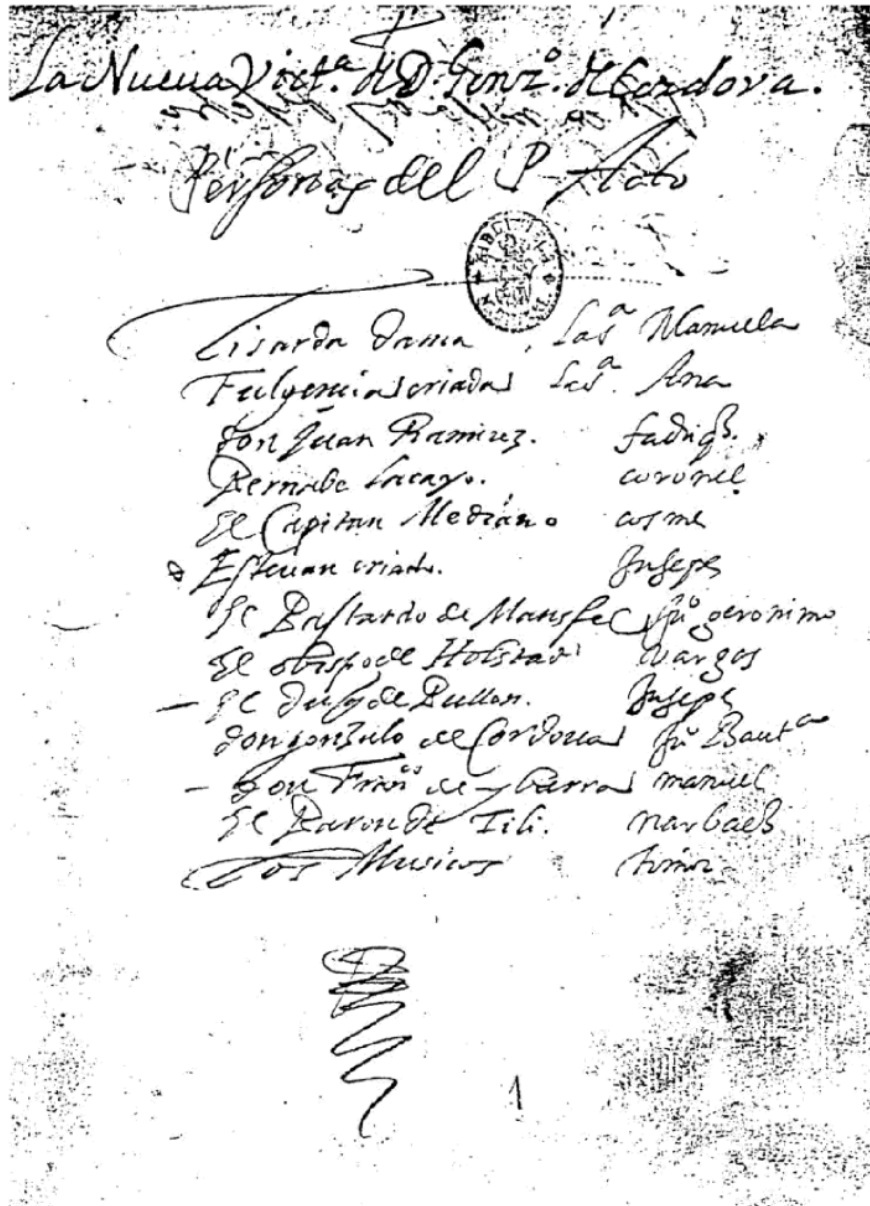 La Nueua Vict.ª de D. Gonz.º de Cordova.
Personas del P Acto
Lisarda dama , La s.ª Manuela
Fulgencia criada La s.ª Ana
don Juan Ramirez. fadriq̃.
Bernabe lacayo. coronel
El Capitan Medrano cosme
Esteuan criado. Jusepe
El Bastardo de Mansfel Ju.º geronimo
El obispo de Holstad Vargas
El duq de Bullon. Jusepe
don gonzalo de Cordoua Ju.º Baut.ª
don Fran.co de ybarra manuel
El Baron de Tili. narbaez
Los Musicos
1